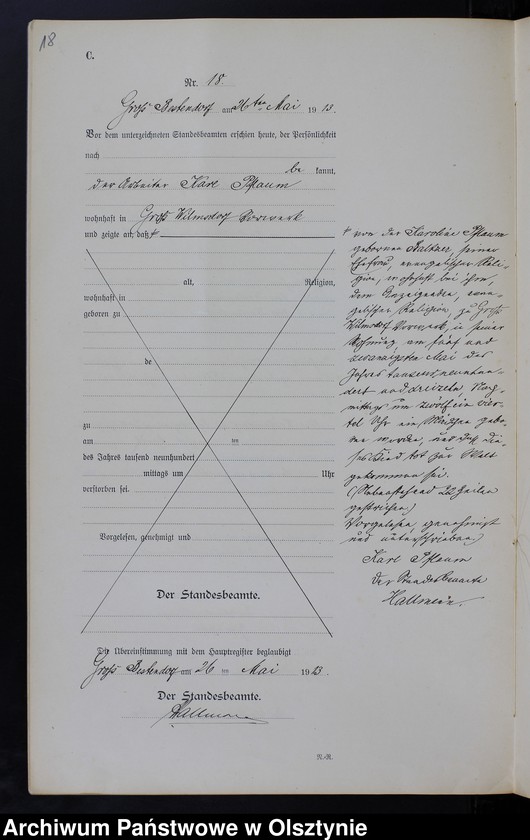 18
C.
Nr. 18.
Groß Bestendorf am 26ten Mai 1913.
Vor dem unterzeichneten Standesbeamten erschien heute, der Persönlichkeit
nach
be kannt,
der Arbeiter Karl Pflaum
wohnhaft in Groß Wilmsdorf Vorwerk
und zeigte an, daß
alt, Religion,
wohnhaft in
geboren zu
de
zu
am ten
des Jahres tausend neunhundert
mittags um Uhr
verstorben sei.
Vorgelesen, genehmigt und
Der Standesbeamte.
Die Übereinstimmung mit dem Hauptregister beglaubigt
Groß Bestendorf am 26 ten Mai 1913.
Der Standesbeamte.
von der Karoline Pflaum
gebornen Baltzer, seiner
Ehefrau, evangelischer Reli-
gion, wohnhaft bei ihm,
dem Anzeigenden, evan-
gelischer Religion, zu Groß
Wilmsdorf Vorwerk, in seiner
Wohnung, am fünf und
zwanzigsten Mai des
Jahres tausend neunhun-
dert und dreizehn, Nach-
mittags um zwölf ein vier-
tel Uhr ein Mädchen gebo-
ren worden, und daß die-
ses Kind tot zur Welt
gekommen sei.
(Nebenstehend 22 Zeilen
gestrichen)
Vorgelesen, genehmigt
und unterschrieben
Karl Pflaum
Der Standesbeamte
N.-R.
Archiwum Państwowe w Olsztynie